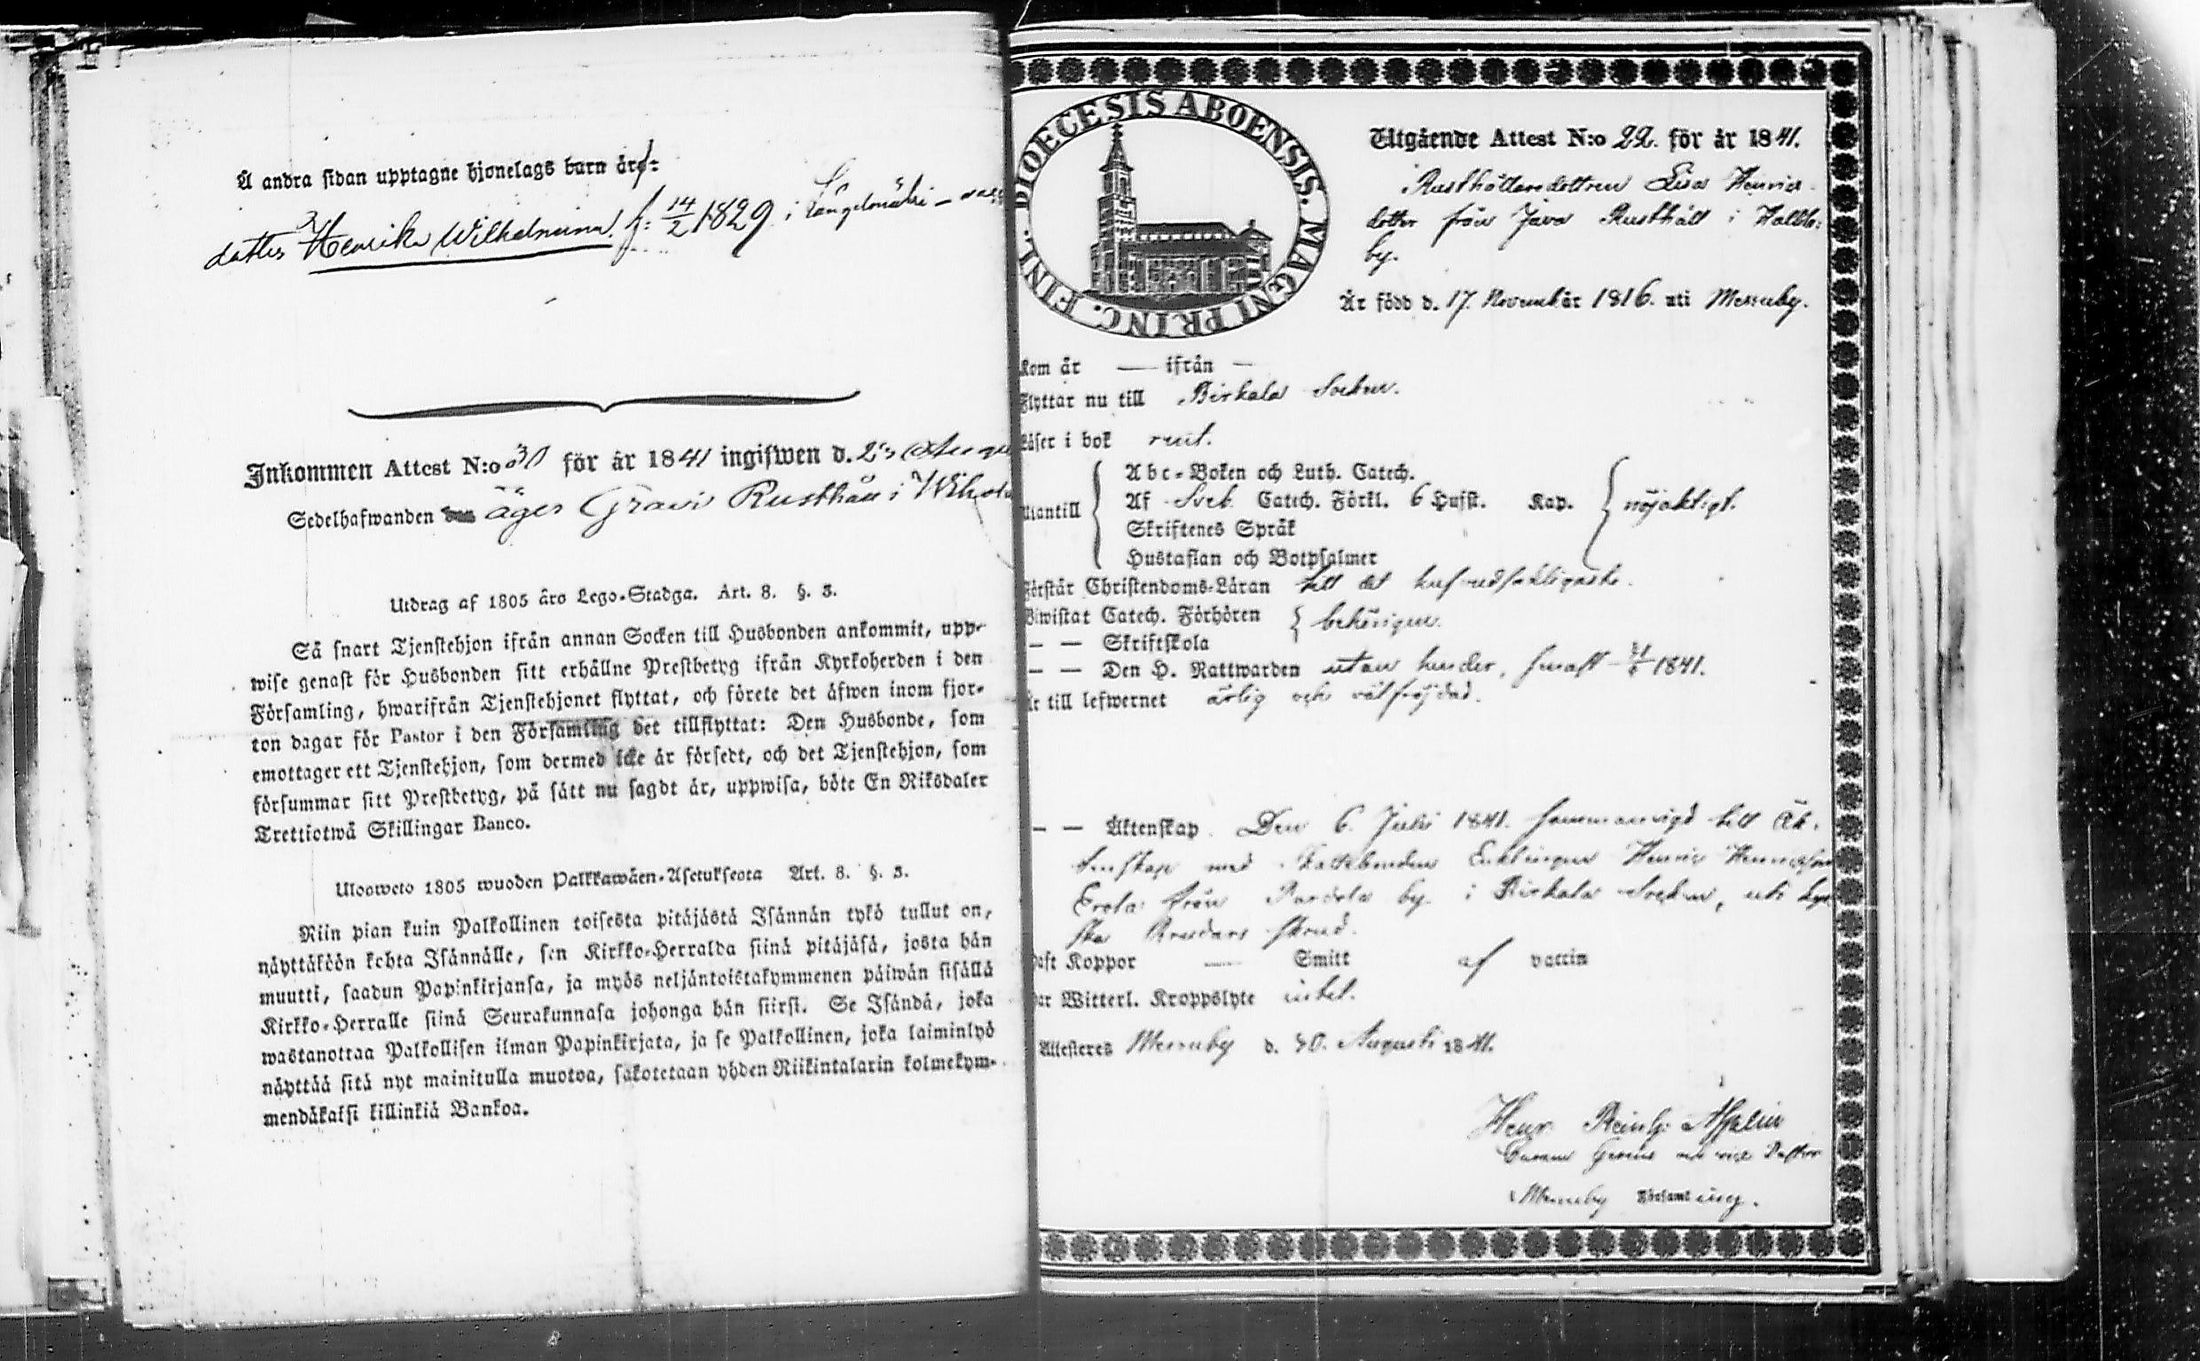 Å andra sidan upptagne hjonelags barn äro:
dotter Henrika Wilhelmina f: 14/2 1829 i Längelmäki
Inkommen Attest N:o 30 för år 1841 ingifwen d.
Sedelhafwanden äger Rusthåll i
Utdrag af 1805 års Lego-Stadga. Art. 8. §. 3.
Så snart Tjenstehjon ifrån annan Socken till Husbonden ankommit, upp-
wise genast för Husbonden sitt erhållne Prestbetyg ifrån Kyrkoherden i den
Församling, hwarifrån Tjenstehjonet flyttat, och förete det äfwen inom fjor-
ton dagar för Pastor i den Församling det tillflyttat: Den Husbonde, som
emottager ett Tjenstehjon, som dermed icke är försedt, och det Tjenstehjon, som
försummar sitt Prestbetyg, på sätt nu sagdt är, uppwisa, böte En Riksdaler
Trettiotwå Skillingar Banco.
Uloswето 1805 wuoden Palkkawäen-Asetuksesta Art. 8. §. 3.
Niin pian kuin Palkollinen toisesta pitäjästä Isännän tykö tullut on,
näyttäköön kohta Isännälle, sen Kirkko-Herralda siinä pitäjäsä, josta hän
muutti, saadun Papinkirjansa, ja myös neljäntoistakymmenen päiwän sisällä
Kirkko-Herralle siinä Seurakunnasa johonga hän siirsi. Se Isändä, joka
wastanottaa Palkollisen ilman Papinkirjata, ja se Palkollinen, joka laiminlyö
näyttää sitä nyt mainitulla muotoa, sakotetaan yhden Riikintalarin kolmekym-
mendäkaksi killinkiä Bankoa.
DIOECESIS ABOENSIS. MAGNI PRINC. FINL.
Utgående Attest N:o 22. för år 1841.
Rusthållaredottren Lisa Henrics-
dotter från Rusthåll i
by.
Är född d. 17. November 1816. uti Messuby.
Kom år — ifrån —
Flyttar nu till Birkala Socken.
Läser i bok rent.
Utantill
Abc-Boken och Luth. Catech.
Af Sveb. Catech. Förkl. 6 Hufst. Kap. nöjaktigt.
Skriftenes Språk
Hustaflan och Botpsalmer
Förstår Christendoms-Läran till det hufvudsakligaste.
Biwistat Catech. Förhören behörigen.
— — Skriftskola
— — Den H. Nattwarden utan hinder, senast 1841.
Är till lefwernet ärlig och välfräjdad.
— — Äktenskap Den 6. Julii 1841. sammanvigd till Äk-
tenskap med Enklingen Henric Henricsson
Erola från by i Birkala Socken, uti kyr-
Brudars skrud.
Haft Koppor — Smitt af vaccin
Har Witterl. Kroppslyte intet.
Attesteras Messuby d. 20. Augusti 1841.
Henr. Reinh:
vice Pastor
i Messuby Församling.